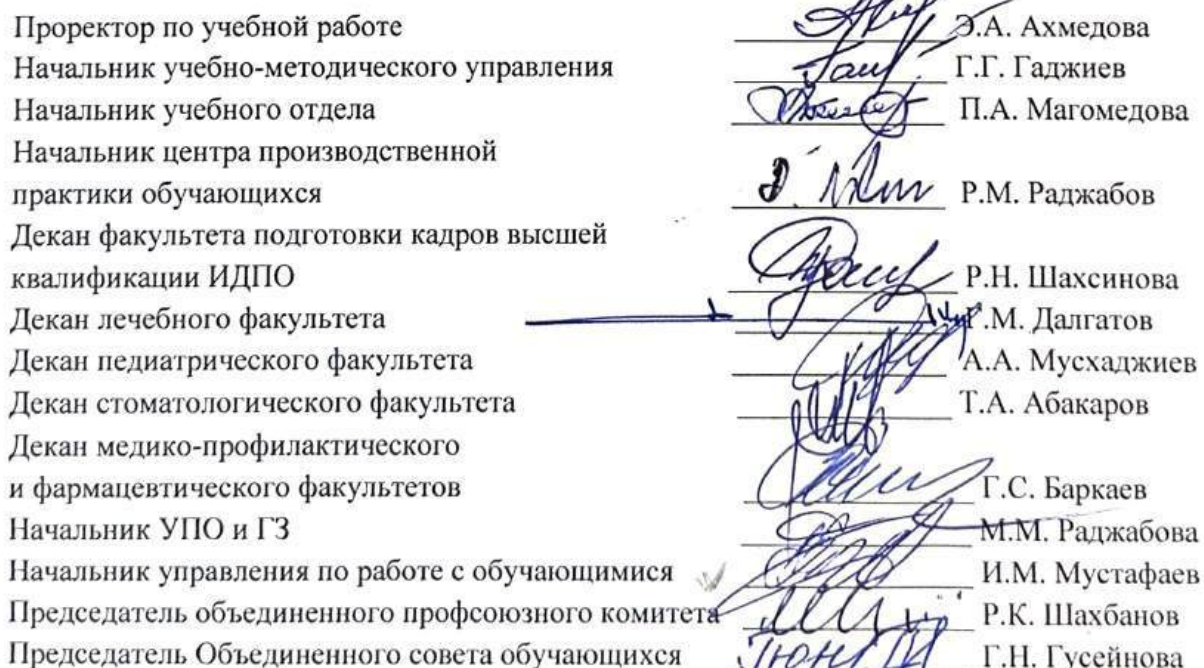 Проректор по учебной работе Э.А. Ахмедова
Начальник учебно-методического управления Г.Г. Гаджиев
Начальник учебного отдела П.А. Магомедова
Начальник центра производственной
практики обучающихся Р.М. Раджабов
Декан факультета подготовки кадров высшей
квалификации ИДПО Р.Н. Шахсинова
Декан лечебного факультета .М. Далгатов
Декан педиатрического факультета А.А. Мусхаджиев
Декан стоматологического факультета Т.А. Абакаров
Декан медико-профилактического
и фармацевтического факультетов Г.С. Баркаев
Начальник УПО и ГЗ М.М. Раджабова
Начальник управления по работе с обучающимися И.М. Мустафаев
Председатель объединенного профсоюзного комитета Р.К. Шахбанов
Председатель Объединенного совета обучающихся Г.Н. Гусейнова